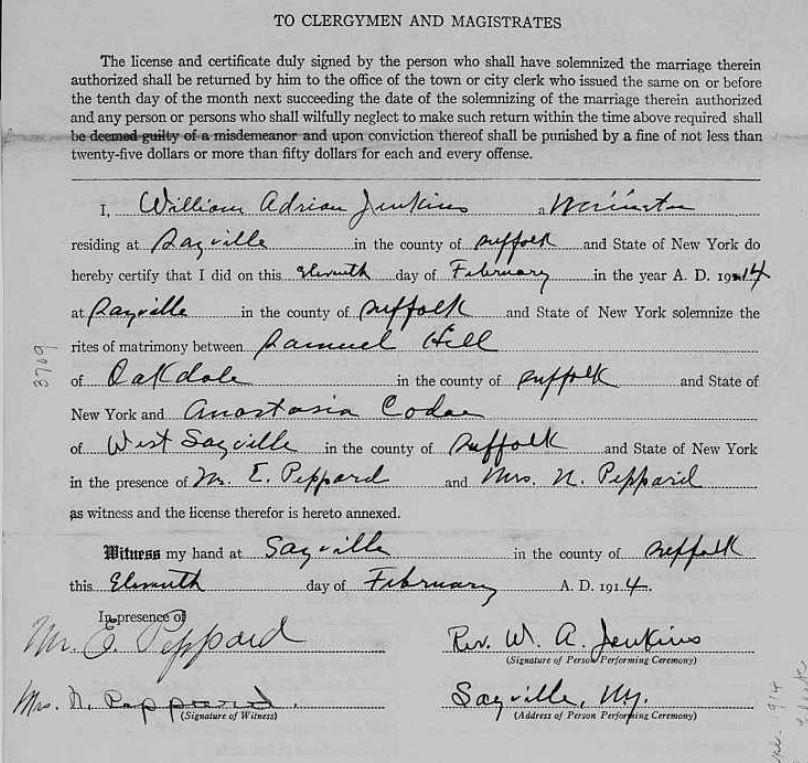 TO CLERGYMEN AND MAGISTRATES
The license and certificate duly signed by the person who shall have solemnized the marriage therein
authorized shall be returned by him to the office of the town or city clerk who issued the same on or before
the tenth day of the month next succeeding the date of the solemnizing of the marriage therein authorized
and any person or persons who shall wilfully neglect to make such return within the time above required shall
be deemed guilty of a misdemeanor and upon conviction thereof shall be punished by a fine of not less than
twenty-five dollars or more than fifty dollars for each and every offense.
I, William Adrian Jenkins a Minister
residing at Sayville in the county of Suffolk and State of New York do
hereby certify that I did on this Eleventh day of February in the year A. D. 1914
at Sayville in the county of Suffolk and State of New York solemnize the
rites of matrimony between Samuel Hill
of Oakdale in the county of Suffolk and State of
New York and Anastasia
of West Sayville in the county of Suffolk and State of New York
in the presence of Mr. E. Peppard and Mrs. N. Peppard
as witness and the license therefor is hereto annexed.
Witness my hand at Sayville in the county of Suffolk
this Eleventh day of February A. D. 1914.
In presence of
Mr. E. Peppard
Rev. W. A. Jenkins
(Signature of Person Performing Ceremony)
Mrs. N. Peppard.
(Signature of Witness)
Sayville, N.Y.
(Address of Person Performing Ceremony)
3709
1914